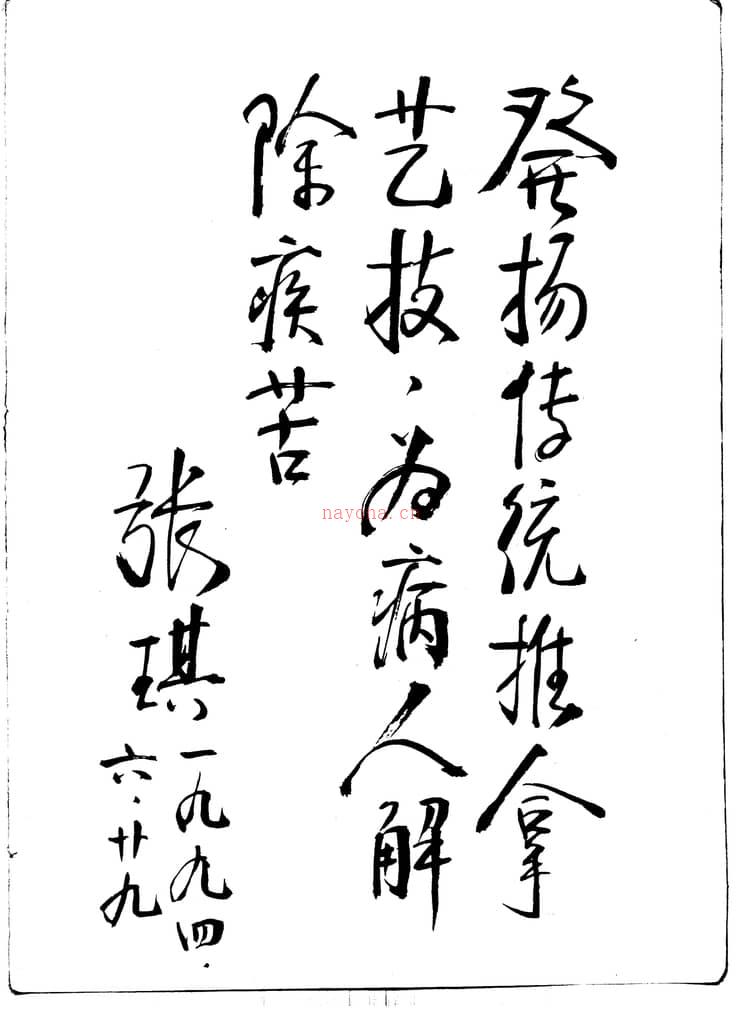 發扬传统推拿
艺技、为病人解
除疾苦
张琪
一九九四.
六.廿九
nayona.cn